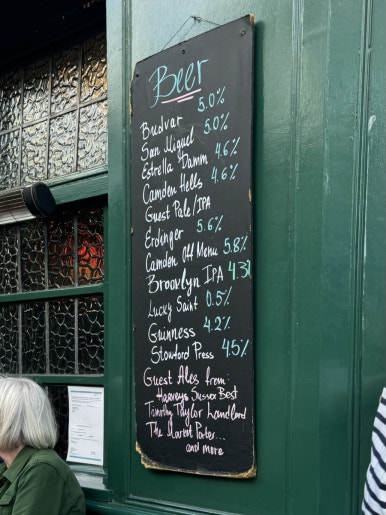 Beer
Budvar 5.0%
San Miguel 5.0%
Estrella Damm 4.6%
Camden Hells 4.6%
Guest Pale/IPA
Erdinger 5.6%
Camden Off Menu 5.8%
Brooklyn IPA 4.3%
Lucky Saint 0.5%
Guinness 4.2%
Stowford Press 4.5%
Guest Ales from:
Harveys Sussex Best
Timothy Taylor Landlord
The Market Porter...
and more